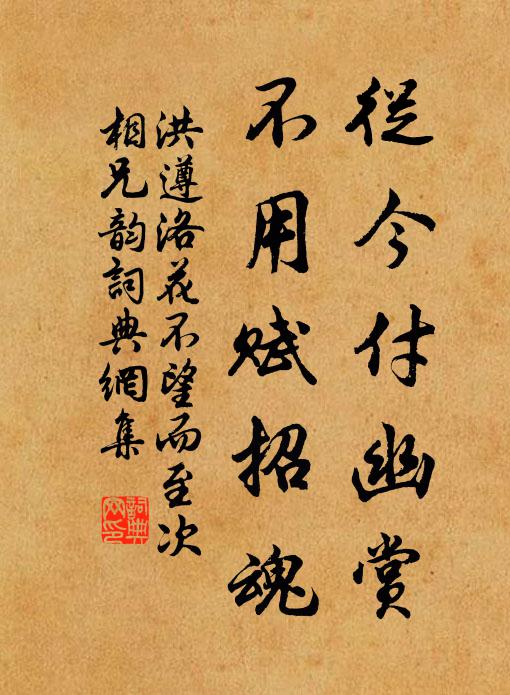 從今付幽賞
不用赋招魂
洪遵洛花不望而至次
相兄韵詞典網集
詞典
网印